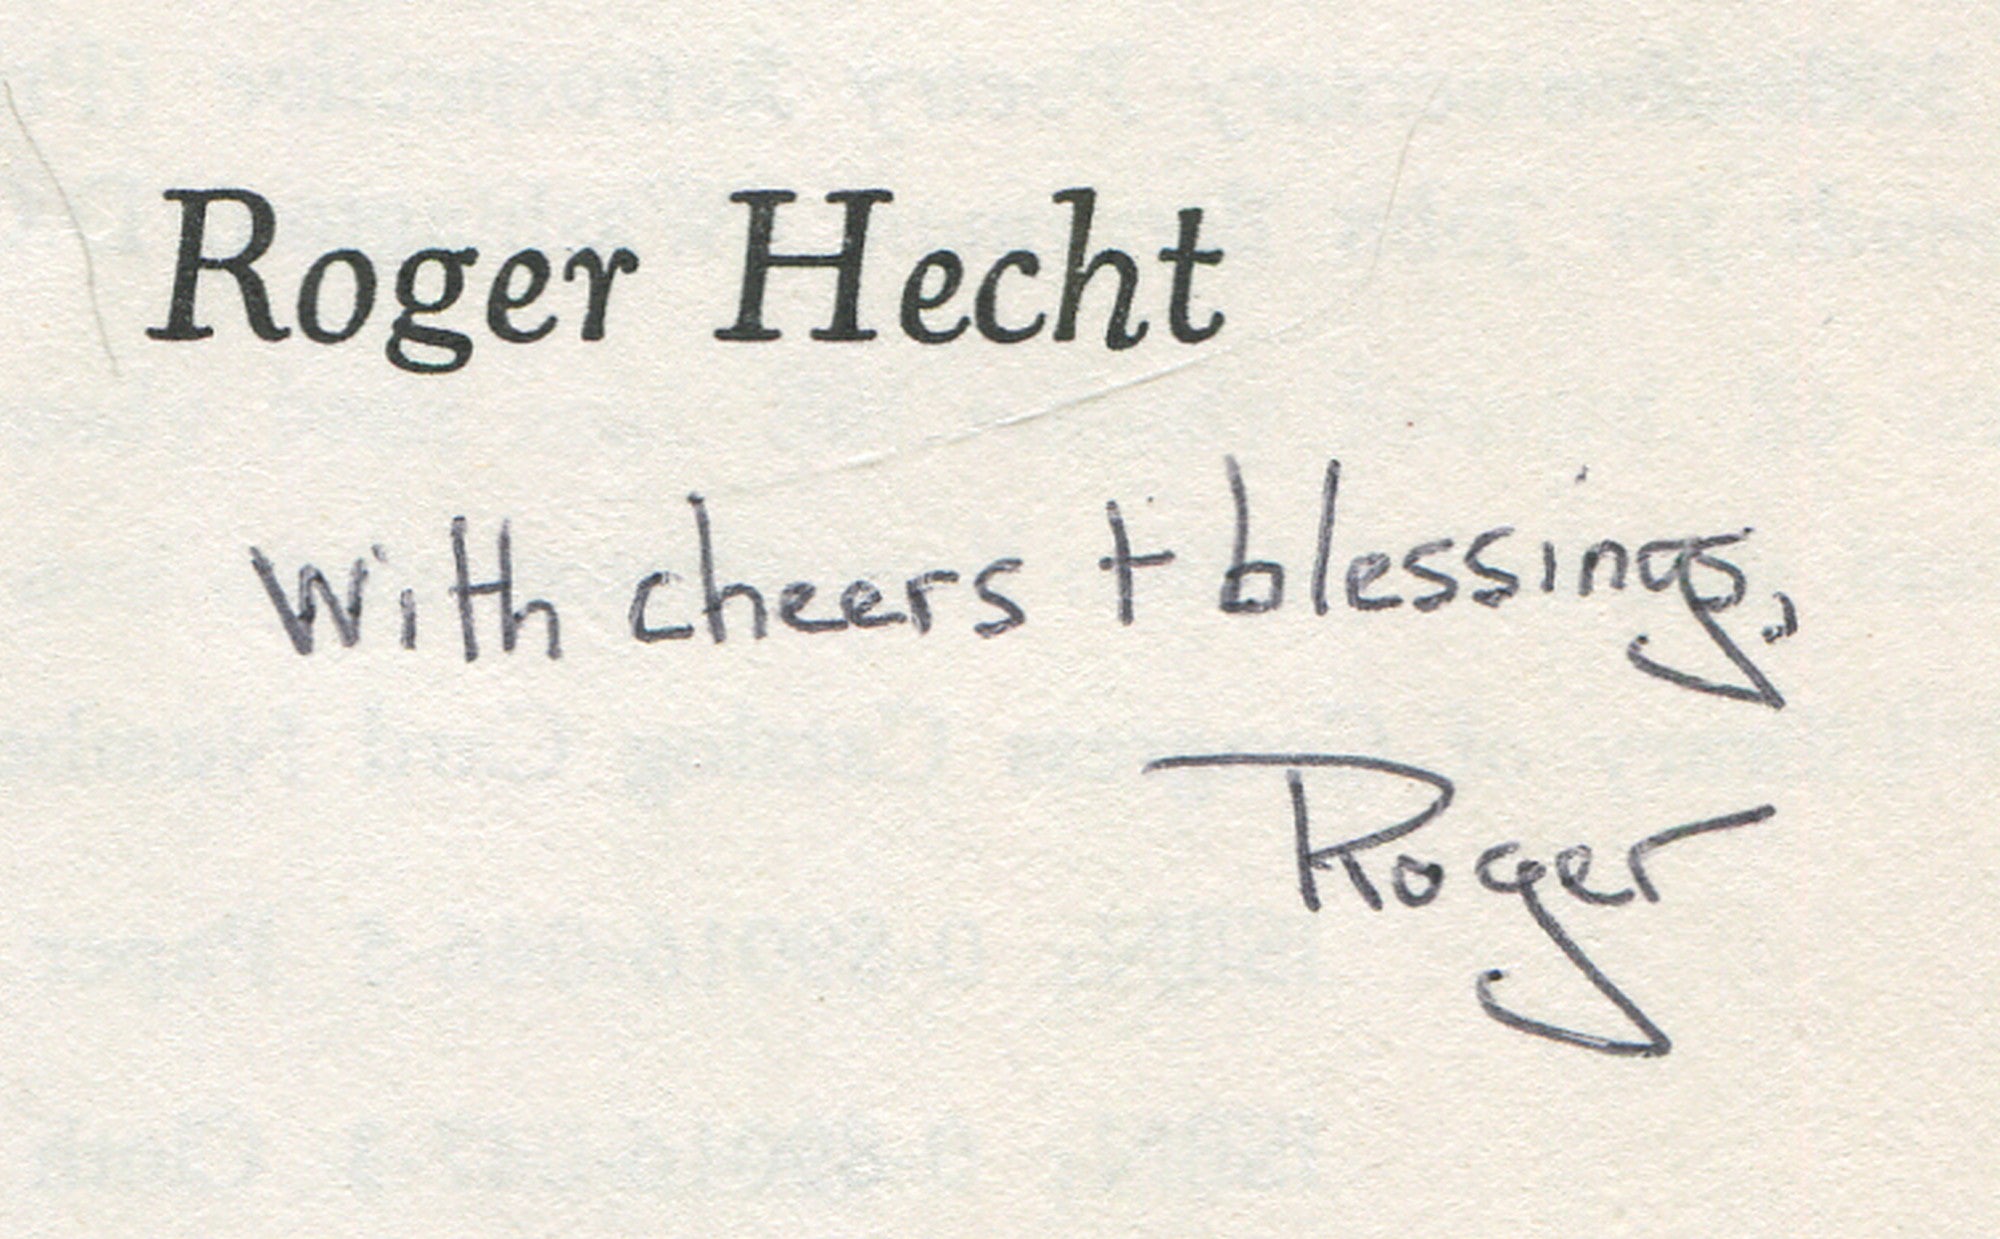 Roger Hecht
With cheers + blessings,
Roger